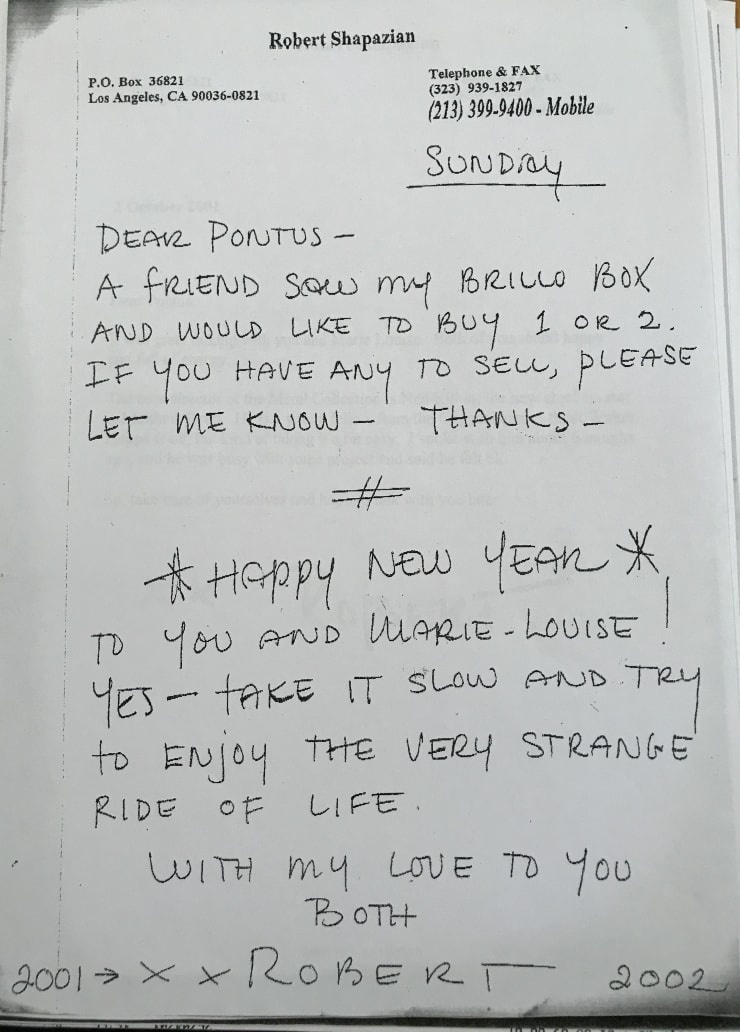 Robert Shapazian
P.O. Box 36821
Los Angeles, CA 90036-0821
Telephone & FAX
(323) 939-1827
(213) 399-9400 - Mobile
SUNDAY
DEAR PONTUS –
A FRIEND SAW MY BRILLO BOX
AND WOULD LIKE TO BUY 1 OR 2.
IF YOU HAVE ANY TO SELL, PLEASE
LET ME KNOW – THANKS –
* HAPPY NEW YEAR *
TO YOU AND MARIE-LOUISE!
YES – TAKE IT SLOW AND TRY
TO ENJOY THE VERY STRANGE
RIDE OF LIFE.
WITH MY LOVE TO YOU
BOTH
2001 → X X ROBERT 2002